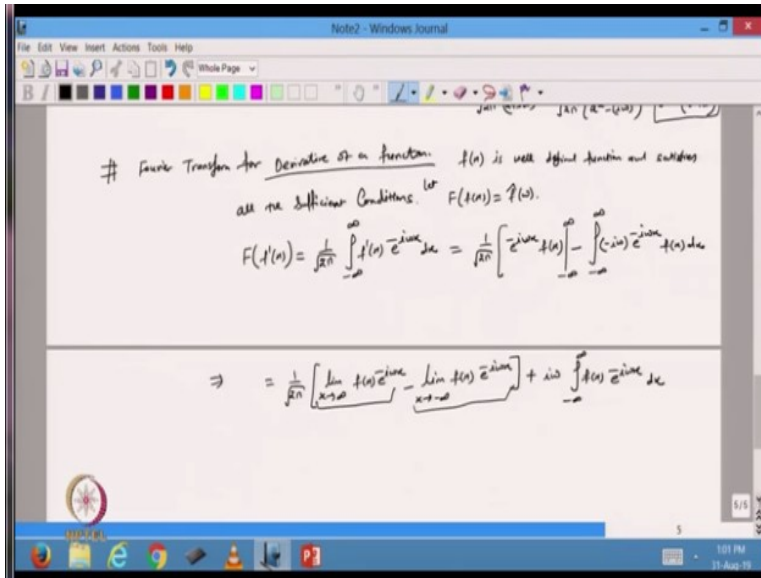 Note2 - Windows Journal
File Edit View Insert Actions Tools Help
Whole Page
B I
# Fourier Transform for Derivative of a function. f(x) is well defined function and satisfies
all the Sufficient Conditions. let F(f(x)) = f̂(ω).
F(f'(x)) = 1/√2π ∫_{-∞}^{∞} f'(x) e^{-iωx} dx = 1/√2π [e^{-iωx} f(x)|_{-∞}^{∞} - ∫_{-∞}^{∞} (-iω) e^{-iωx} f(x) dx
⇒ = 1/√2π [lim_{x→∞} f(x) e^{-iωx} - lim_{x→-∞} f(x) e^{-iωx}] + iω ∫_{-∞}^{∞} f(x) e^{-iωx} dx
5/5
NPTEL
5
1:01 PM
31-Aug-19